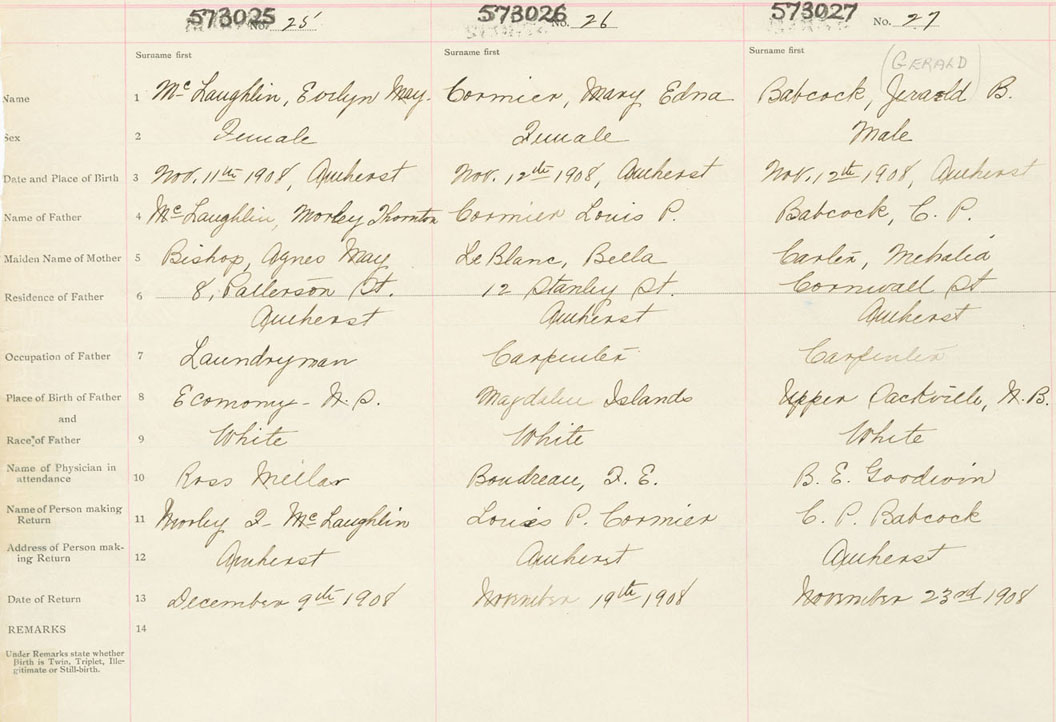 573025 No. 25 573026 No. 26 573027 No. 27
Surname first Surname first Surname first (GERALD)
Name 1 McLaughlin, Evelyn May. Cormier, Mary Edna Babcock, Jerald B.
Sex 2 Female Female Male
Date and Place of Birth 3 Nov. 11th 1908, Amherst Nov. 12th 1908, Amherst Nov. 12th 1908, Amherst
Name of Father 4 McLaughlin, Morley Thornton Cormier Louis P. Babcock, C. P.
Maiden Name of Mother 5 Bishop, Agnes May LeBlanc, Bella Carter, Mehalia
Residence of Father 6 8, Patterson St. 12 Stanley St. Cornwall St
Amherst Amherst Amherst
Occupation of Father 7 Laundryman Carpenter Carpenter
Place of Birth of Father 8 Economy - N.S. Magdalen Islands Upper Sackville, N.B.
and
Race of Father 9 White White White
Name of Physician in
attendance 10 Ross Millar Boudreau, F. E. B. E. Goodwin
Name of Person making
Return 11 Morley T- McLaughlin Louis P. Cormier C. P. Babcock
Address of Person mak-
ing Return 12 Amherst Amherst Amherst
Date of Return 13 December 9th 1908 November 19th 1908 November 23rd 1908
REMARKS 14
Under Remarks state whether
Birth is Twin, Triplet, Ille-
gitimate or Still-birth.